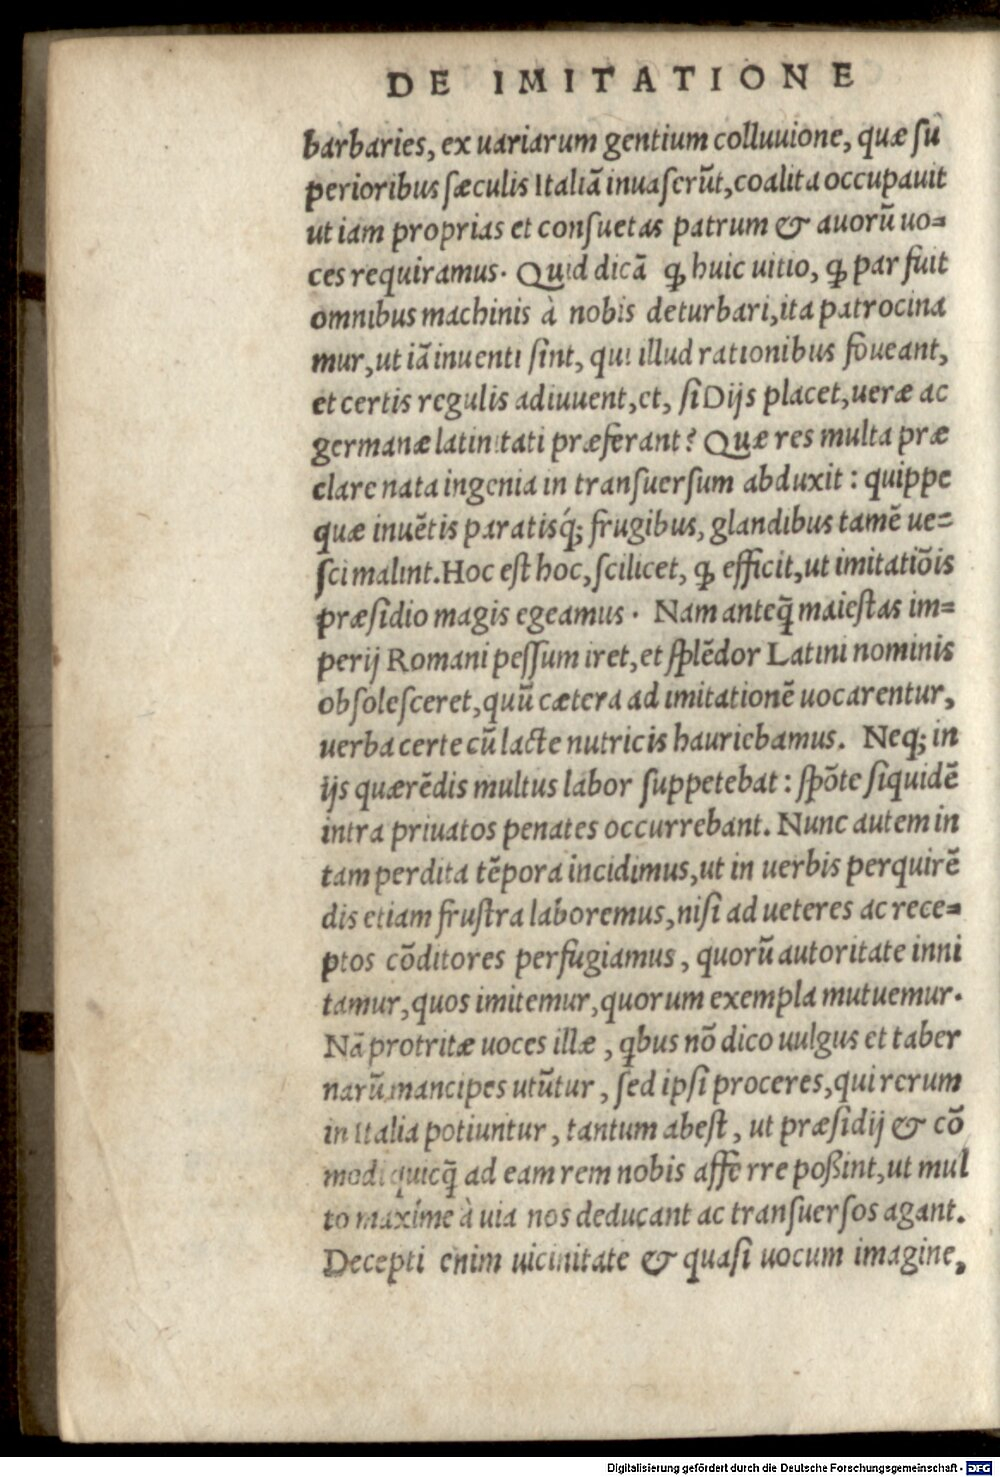 DE IMITATIONE
barbaries, ex uariarum gentium colluuione, quæ su
perioribus sæculis Italiā inuaserūt, coalita occupauit
ut iam proprias et consuetas patrum & auorū uo=
ces requiramus. Quid dicā ꝙ huic uitio, ꝙ par fuit
omnibus machinis à nobis deturbari, ita patrocina
mur, ut iā inuenti sint, qui illud rationibus foueant,
et certis regulis adiuuent, et, si Dijs placet, ueræ ac
germanæ latinitati præferant? Quæ res multa præ
clare nata ingenia in transuersum abduxit: quippe
quæ inuētis paratisq́; frugibus, glandibus tamē ue=
sci malint. Hoc est hoc, scilicet, ꝙ efficit, ut imitatiōis
præsidio magis egeamus. Nam anteq̄ maiestas im=
perij Romani pessum iret, et splēdor Latini nominis
obsolesceret, quū cætera ad imitationē uocarentur,
uerba certe cū lacte nutricis hauriebamus. Neq; in
ijs quærēdis multus labor suppetebat: spōte siquidē
intra priuatos penates occurrebant. Nunc autem in
tam perdita tēpora incidimus, ut in uerbis perquirē
dis etiam frustra laboremus, nisi ad ueteres ac rece=
ptos cōditores perfugiamus, quorū autoritate inni
tamur, quos imitemur, quorum exempla mutuemur.
Nā protritæ uoces illæ, qbus nō dico uulgus et taber
narū mancipes utūtur, sed ipsi proceres, qui rerum
in Italia potiuntur, tantum abest, ut præsidij & cō
modi quicq̄ ad eam rem nobis afferre poßint, ut mul
to maxíme à uia nos deducant ac transuersos agant.
Decepti enim uicinitate & quasi uocum imagine,
Digitalisierung gefördert durch die Deutsche Forschungsgemeinschaft - DFG